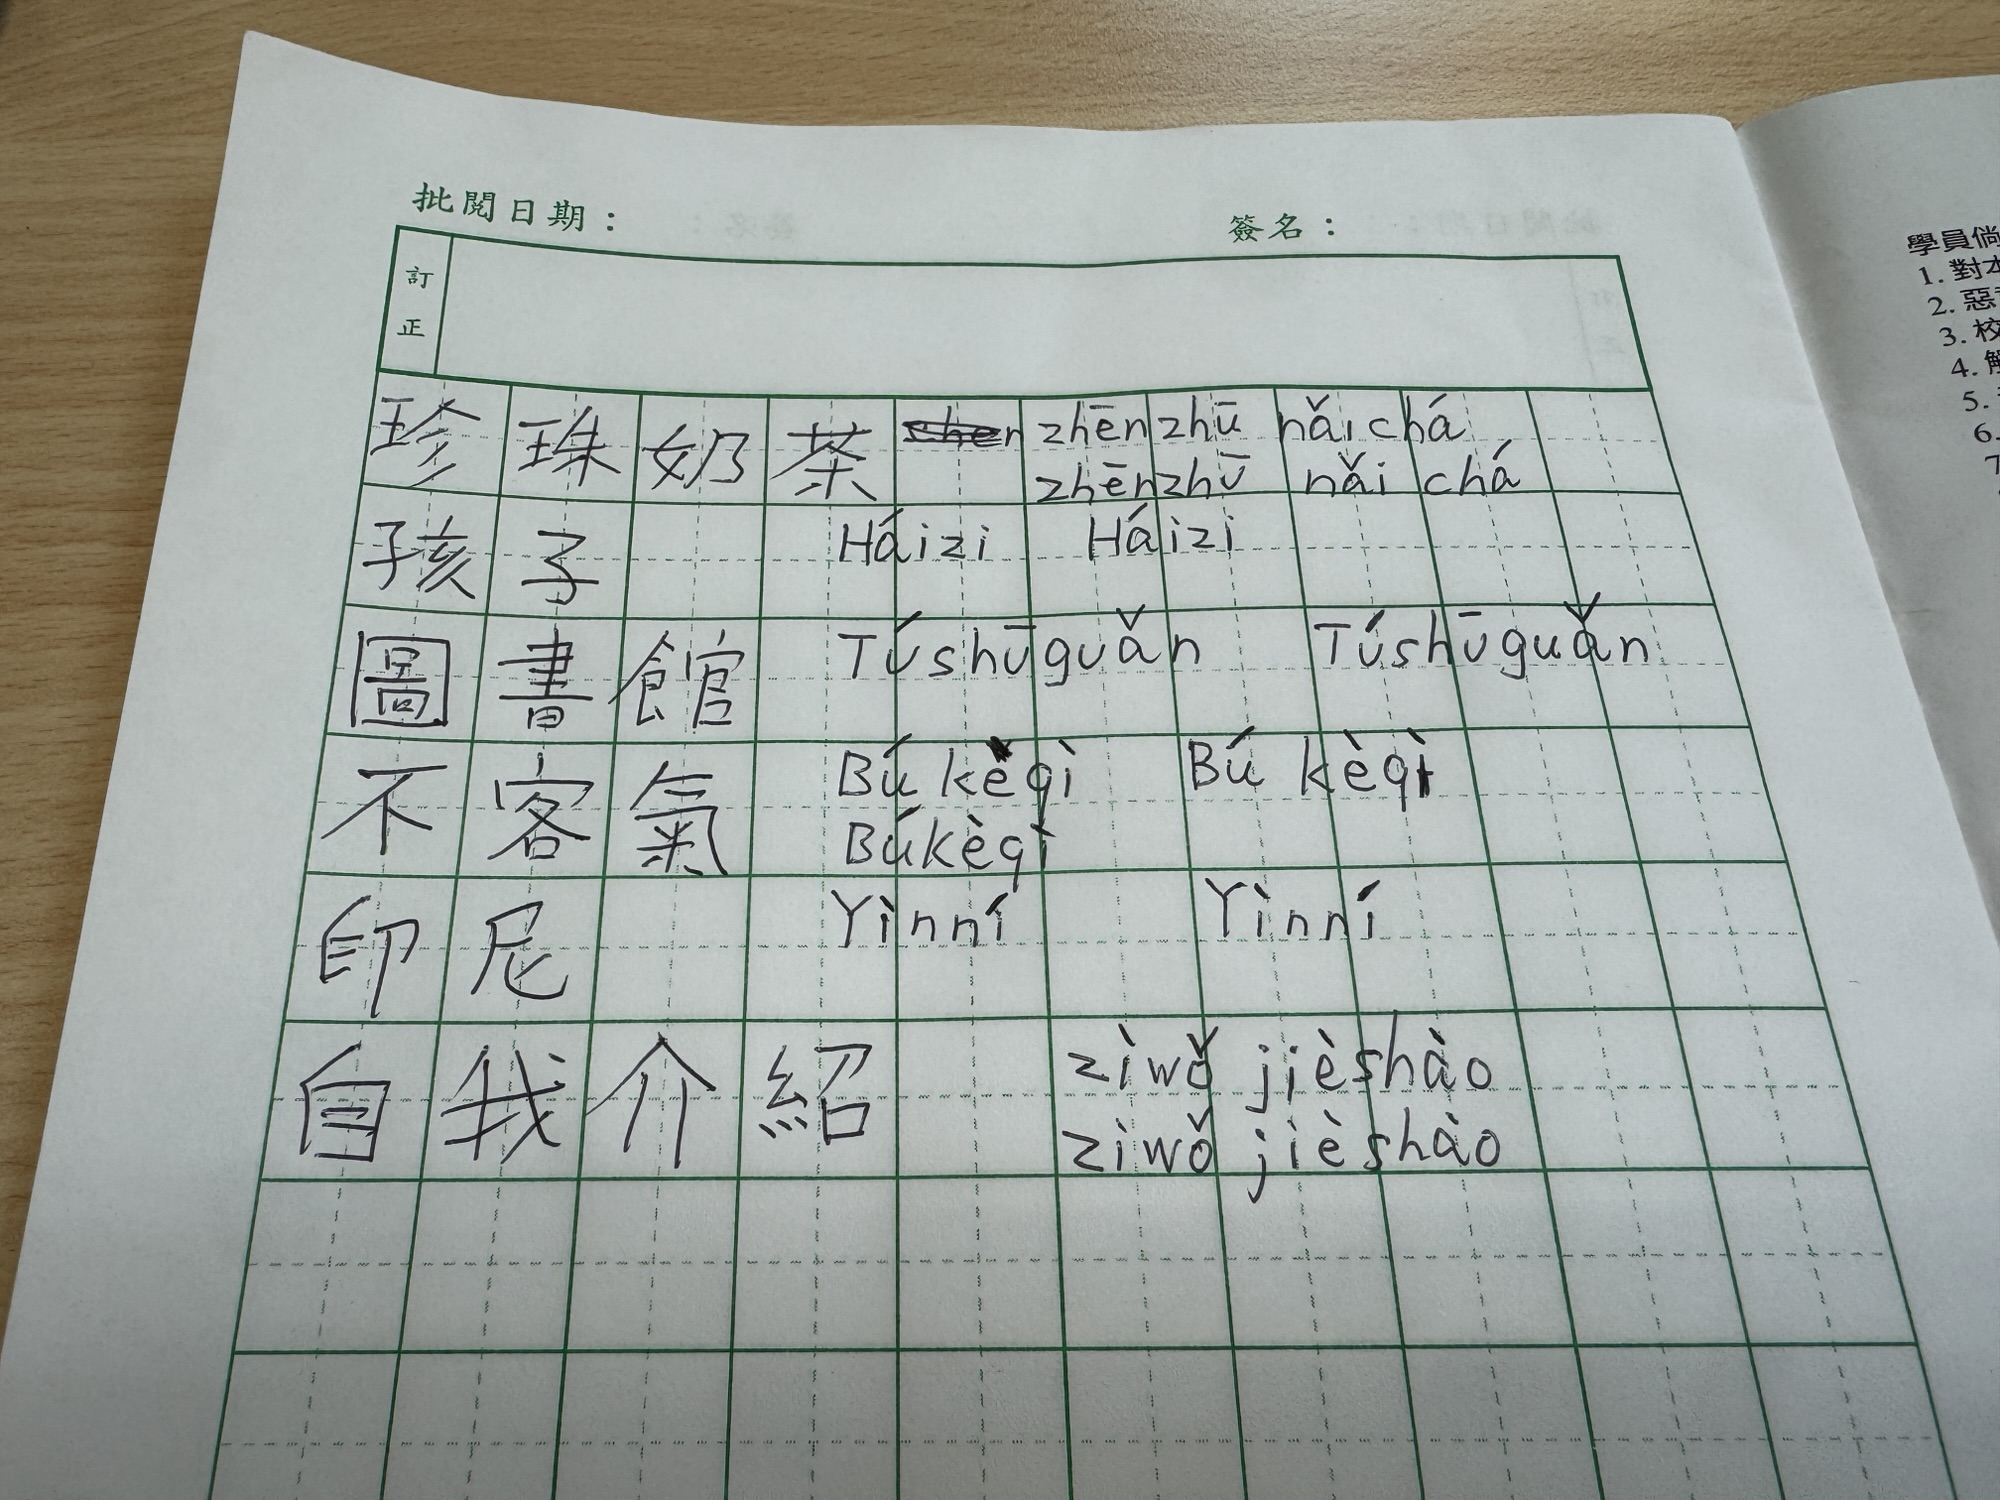 批閱日期： 簽名：
訂正
珍珠奶茶 zhēnzhū nǎichá
zhēnzhū nǎi chá
孩子 Háizi Háizi
圖書館 Túshūguǎn Túshūguǎn
不客氣 Bú kèqì Bú kèqì
Búkèqì
印尼 Yìnní Yìnní
自我介紹 zìwǒ jièshào
zìwǒ jièshào
學員倘
1. 對本
2. 惡
3. 校
4.
5.
6.